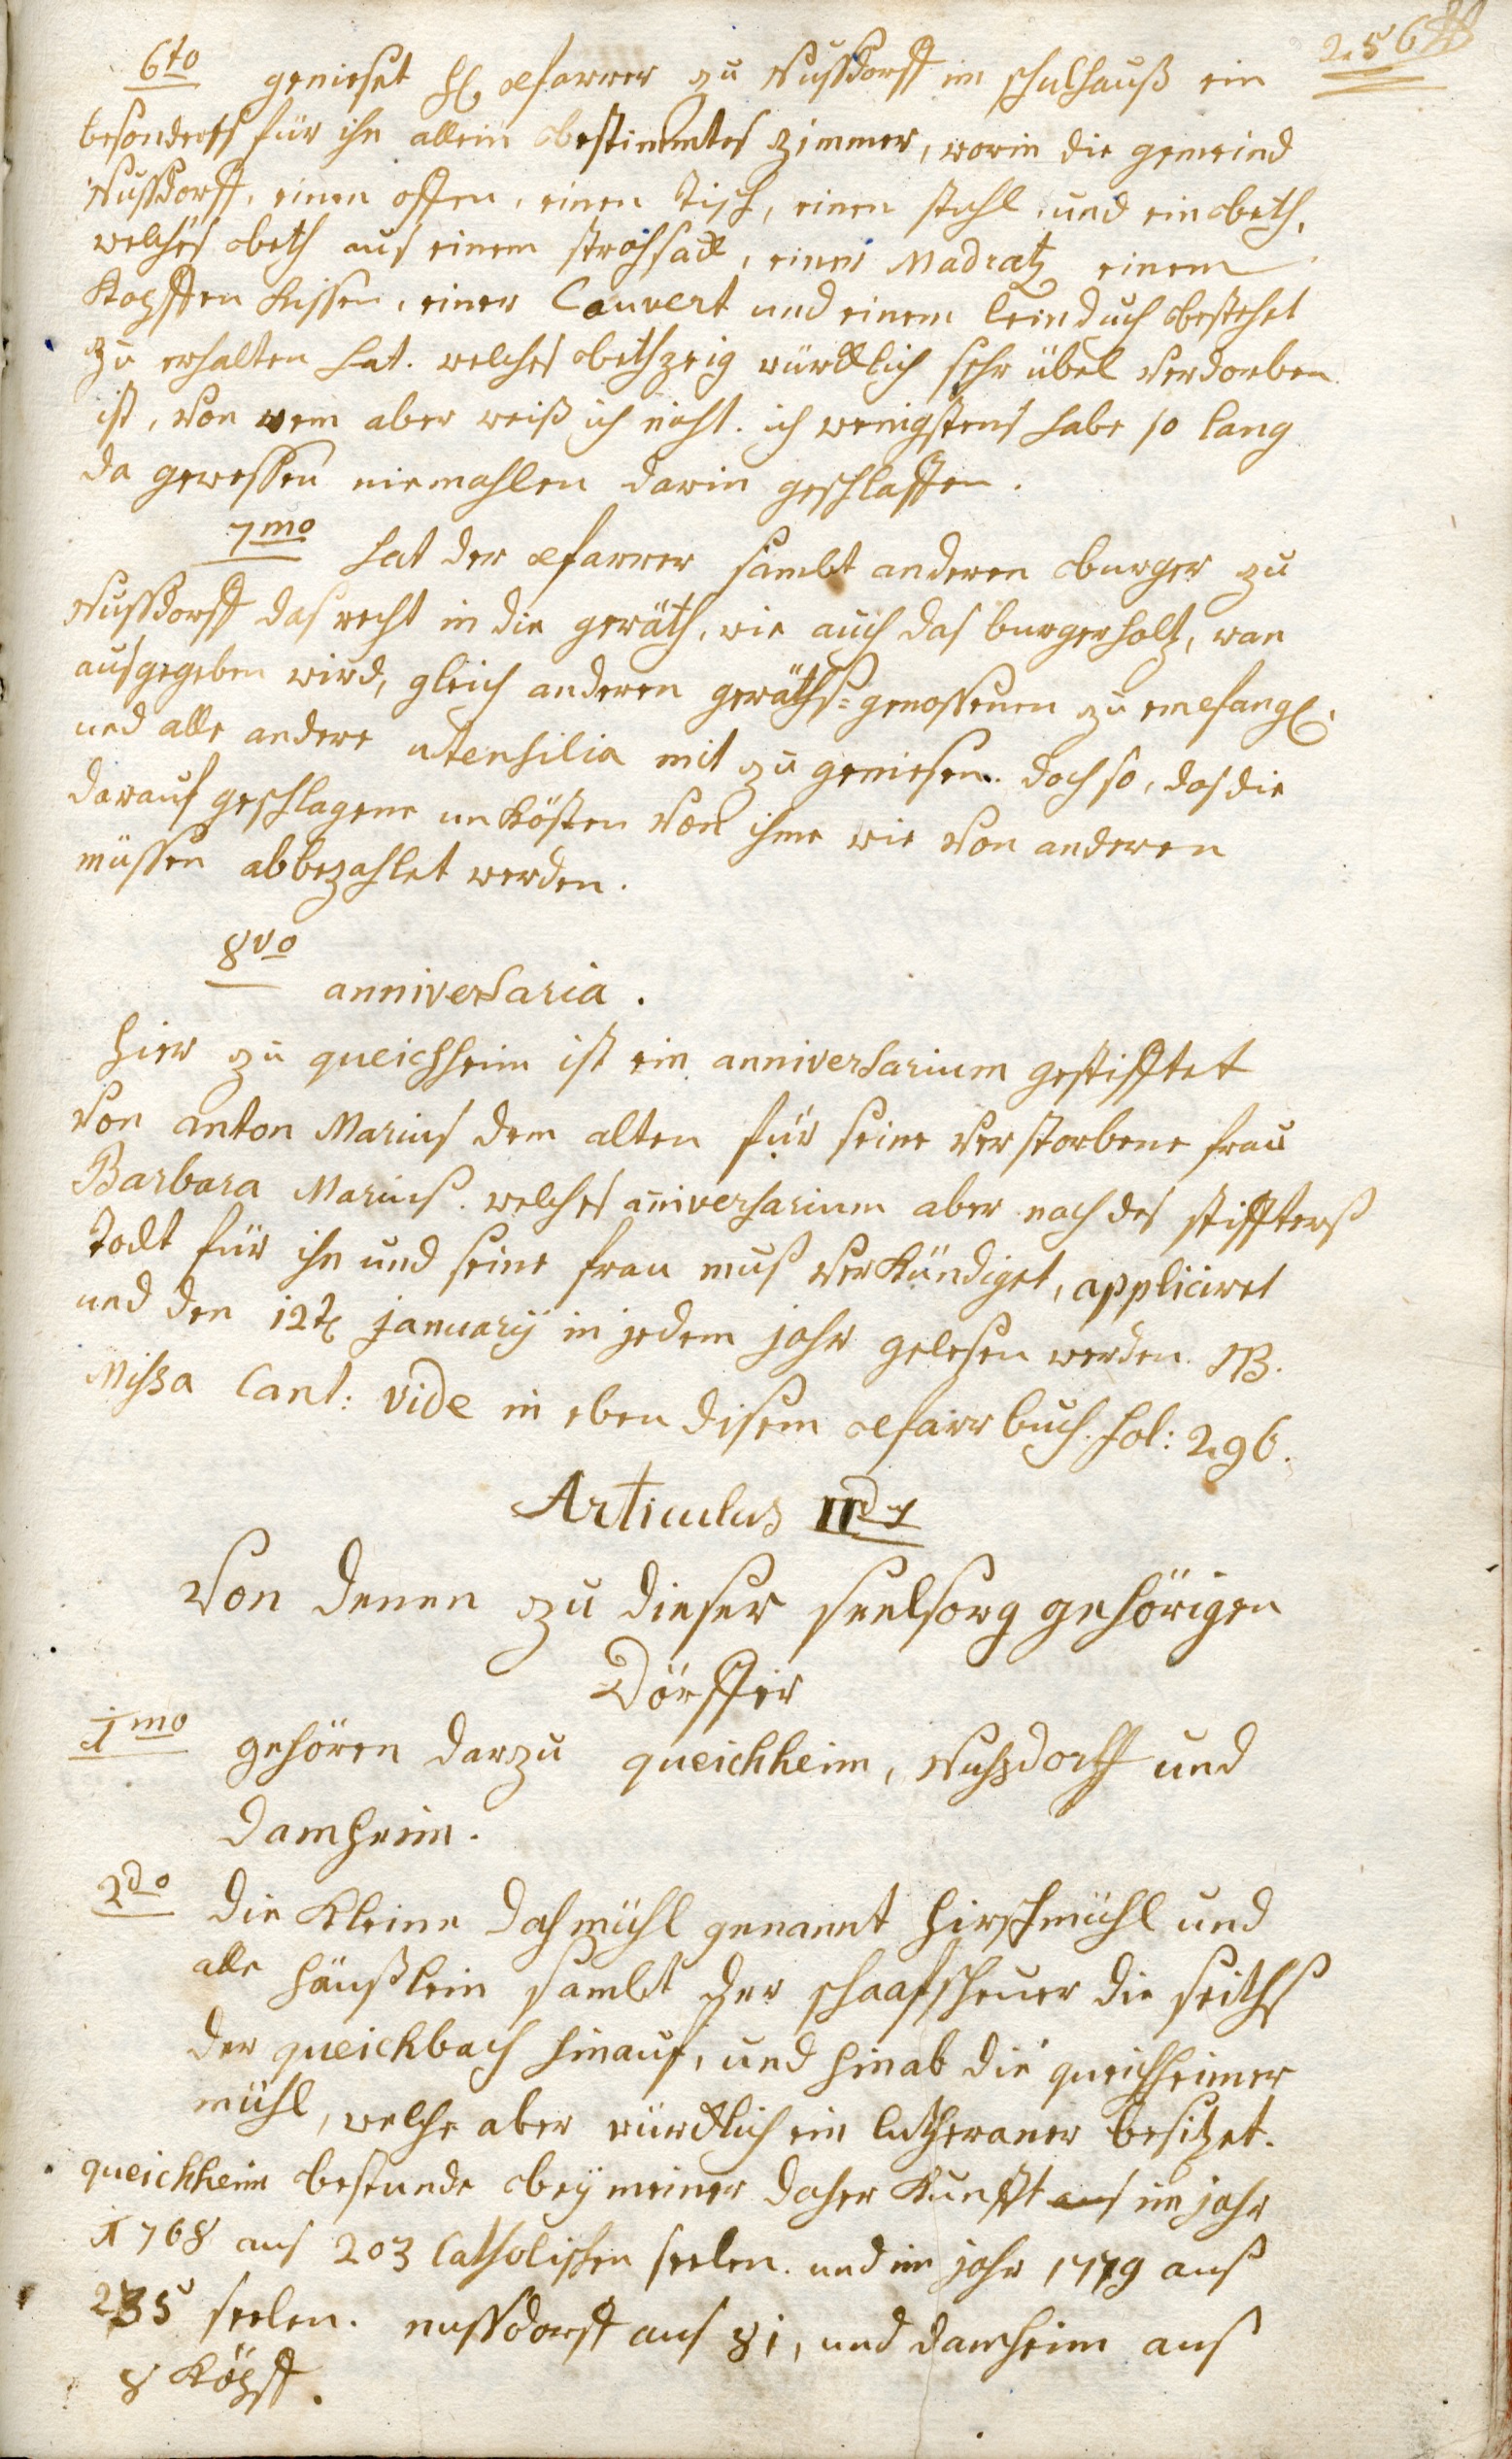 256
6to genieset H. Pfarrer zu Nussdorff im schulhauß ein
besonders für ihn allein bestimmtes zimmer, worin die gemeind
Nussdorff, einen offen, einen Tisch, einen stuhl, und ein beth,
welches beth aus einem strohsack, einer Madratz einem
Kopffen kissen, einer Couvert und einem leinduch bestehet
zu erhalten hat. welches bethzeig würcklich sehr übel verdorben
ist, von wem aber weiß ich nicht. ich wenigstens habe so lang
da gewessen niemahlen darin geschlaffen.
7mo hat der Pfarrer sambt anderen burger zu
Nussdorff das recht in die geräth, wie auch das burgerholtz, wan
ausgegeben wird, gleich anderen geräths=genossenen zu empfang.
und alle andere utensilia mit zu geniesen. doch so, das die
darauf geschlagene unkösten von ihme wie von anderen
müssen abbezahlet werden.
8vo
anniversaria.
hier zu queichheim ist ein anniversarium gestifftet
von anton Marius dem alten für seine verstorbene frau
Barbara Mariuß. welches aniversarium aber nach des stiffterß
todt für ihn und seine frau muß verkündiget, appliciret
und den 12t januarij in jedem jahr gelesen werden. NB.
Missa Cant: vide in eben disem Pfarrbuch. fol: 296.
Articulus IIdus
von denen zu dieser seelsorg gehörigen
Dörffer
1mo gehören darzu queichheim, Nussdorff und
Damheim.
2do die kleine dachmühl genannt hirschmühl und
alle häußlein sambt der schaafscheuer die seiths
der queichbach hinauf, und hinab die queichheimer
mühl, welche aber würcklich ein lutheraner besitzet.
queichheim bestunde bey meiner daher kunfft aus im jahr
1768 aus 203 Catholischen seelen. und im jahr 1779 aus
235 seelen. nussdorff aus 81, und damheim aus
8 Köpff.